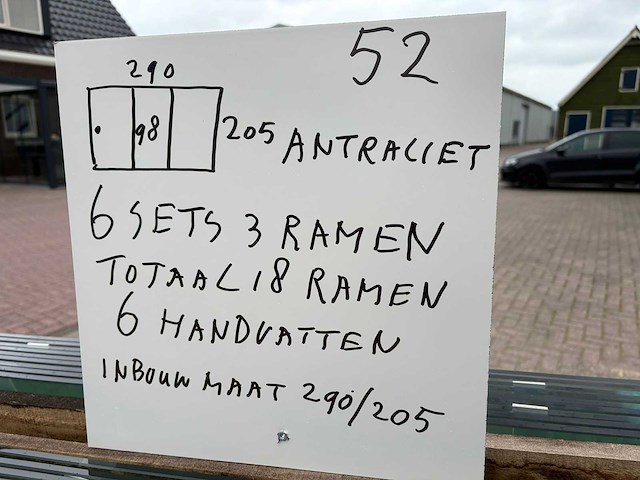 52
290
98
205 ANTRACIET
6 SETS 3 RAMEN
TOTAAL 18 RAMEN
6 HANDVATTEN
INBOUW MAAT 290/205